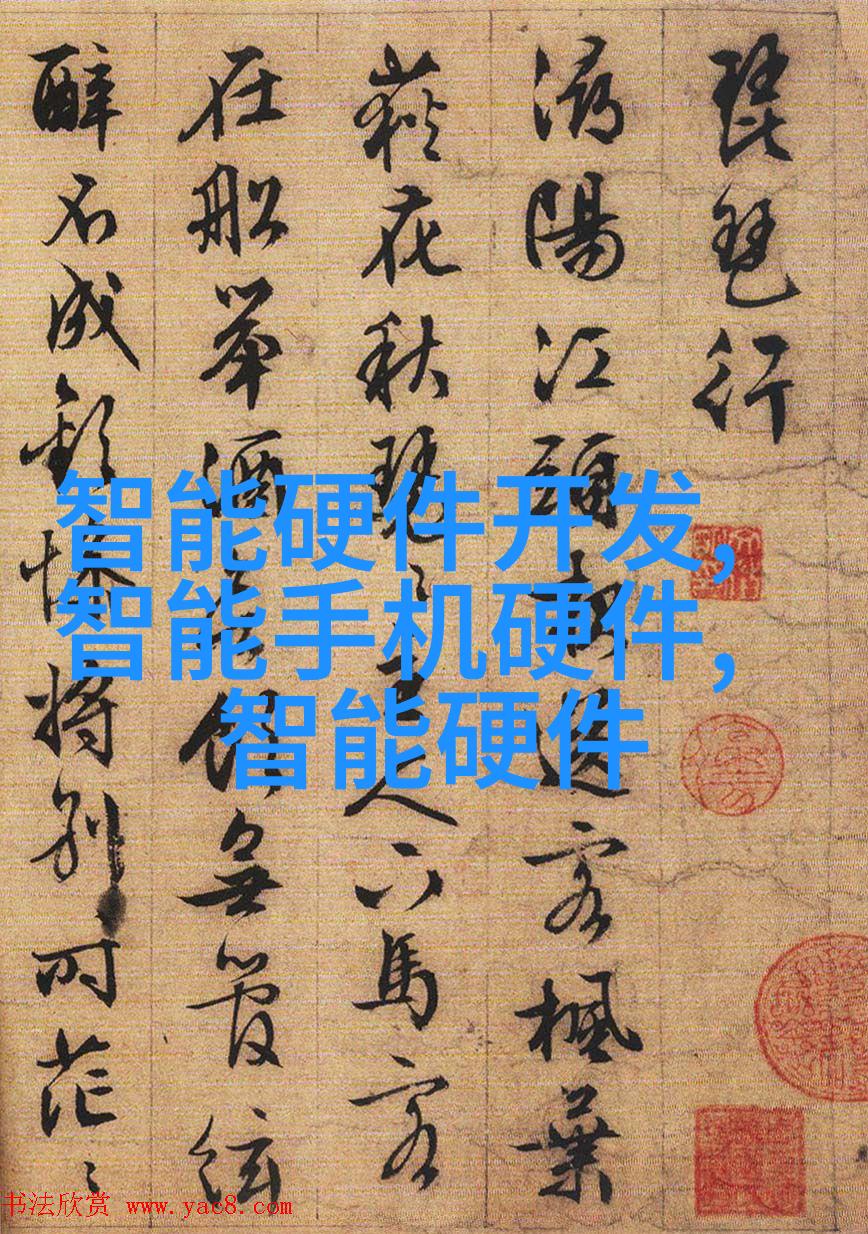 琵琶行
潯陽江頭夜送客楓葉
荻花秋瑟〻主人下馬客
在船舉酒欲飲無管絃
醉不成歡慘將別〻時茫〻
智能硬件开发,
智能手机硬件,
智能硬件
书法欣赏 www.yac8.com